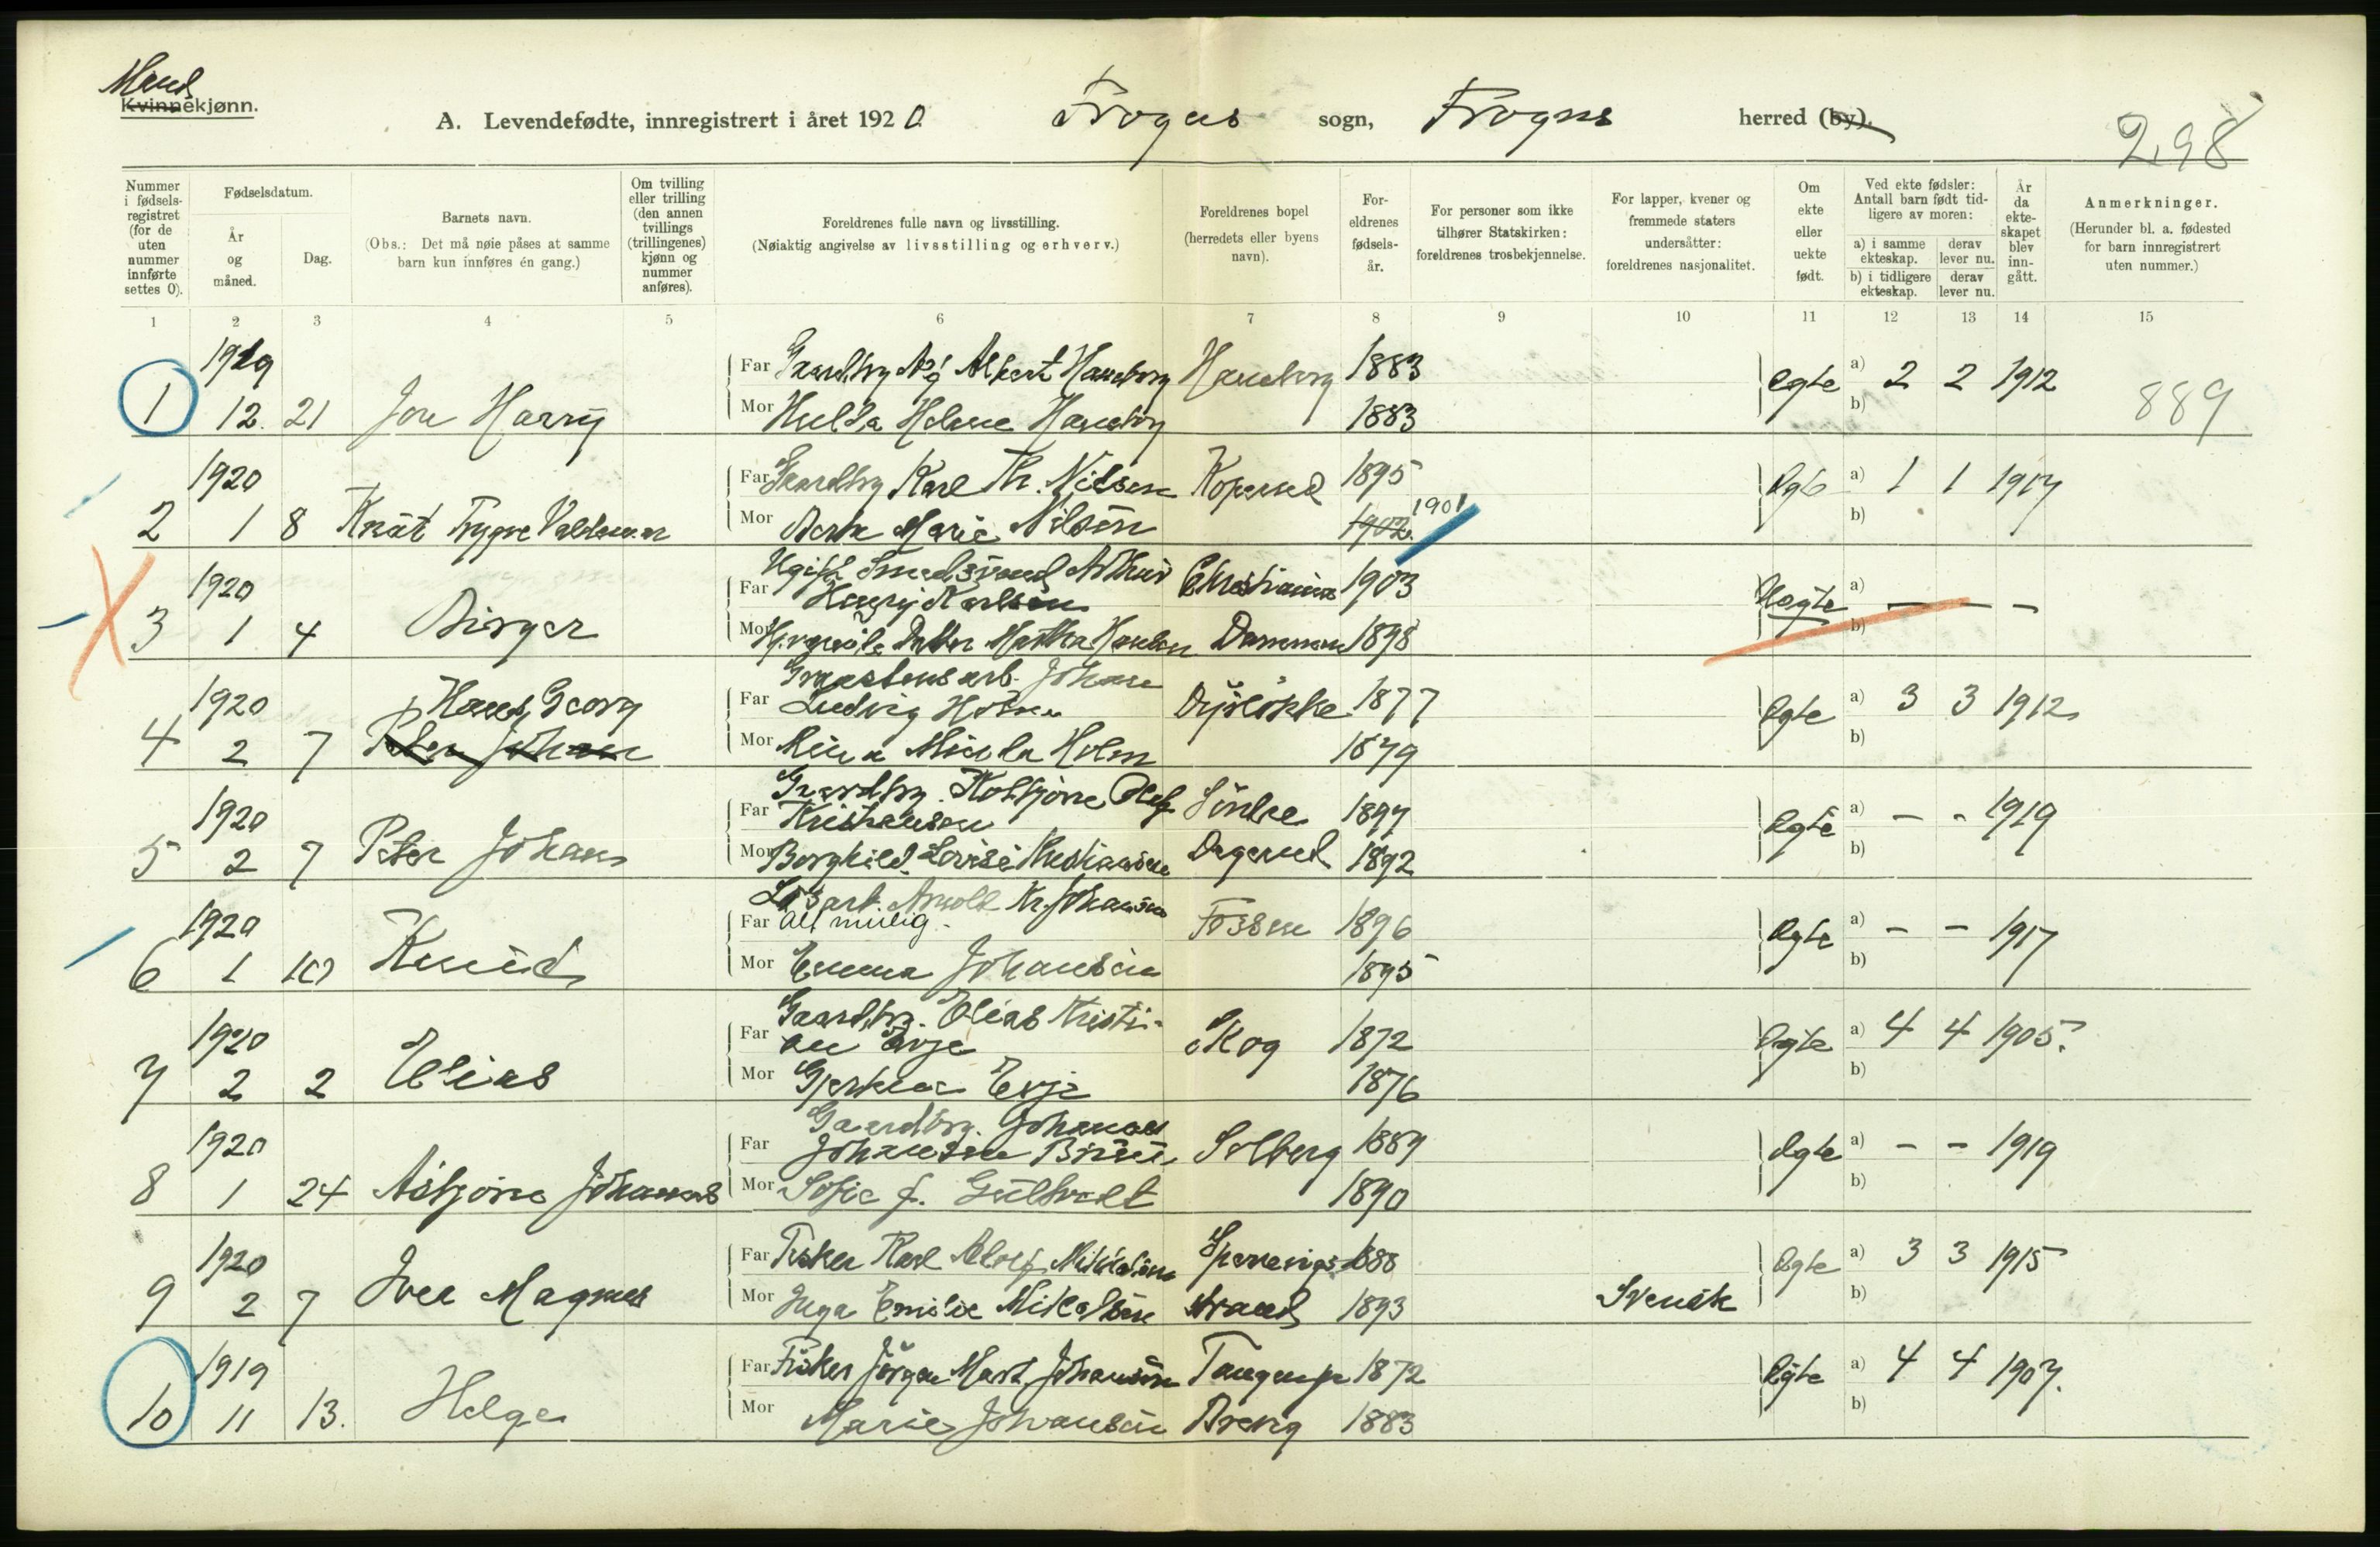 Mand
Kvinnekjønn.
A. Levendefødte, innregistrert i året 1920. Frogns sogn, Frogns herred (by).
298
Nummer i fødselsregistret (for de uten nummer innførte settes 0).
Fødselsdatum.
År og måned.
Dag.
Barnets navn.
(Obs.: Det må nøie påses at samme barn kun innføres én gang.)
Om tvilling eller trilling (den annen tvillings (trillingenes) kjønn og nummer anføres).
Foreldrenes fulle navn og livsstilling.
(Nøiaktig angivelse av livsstilling og erhverv.)
Foreldrenes bopel (herredets eller byens navn).
Foreldrenes fødselsår.
For personer som ikke tilhører Statskirken: foreldrenes trosbekjennelse.
For lapper, kvener og fremmede staters undersåtter: foreldrenes nasjonalitet.
Om ekte eller uekte født.
Ved ekte fødsler: Antall barn født tidligere av moren:
a) i samme ekteskap. derav lever nu.
b) i tidligere ekteskap. derav lever nu.
År da ekteskapet blev inngått.
Anmerkninger.
(Herunder bl. a. fødested for barn innregistrert uten nummer.)
1 2 3 4 5 6 7 8 9 10 11 12 13 14 15
1919 Far Albert Haneborg Haneborg 1883 Egte a) 2 2 1912
1 12. 21 Harry Mor Hulda Helene Haneborg 1883 b) 889
1920 Far Gaardbrg Karl Th. Nilsen Kopperud 1895 Egte a) 1 1 1917
2 1 8 Knut Trygve Valdemar Mor Marie Nilsen 1902. 1901 b)
1920 Ugift Arthur
Far Henry Karlsen Christiania 1903 Uegte a) – – –
3 1 4 Birger Mor Martha 1898 b)
1920 Hans Georg Johan
Far Ludvig Holm 1877 Egte a) 3 3 1912
4 2 7 Peter Johan Mor Holm 1879 b)
1920 Gaardbrg. Kolbjørn Olaf
Far Kristiansen Søndre 1897 Egte a) – – 1919
5 2 7 Peter Johan Mor Borghild Lovise Kristiansen 1892 b)
1920 Løsarb. Arnold Kr. Johansen
Far Alt mulig. Fossen 1896 Egte a) – – 1917
6 1 10 Knud Mor Emma Johansen 1895 b)
1920 Gaardbrg. Elias Kristi-
Far an Evje Skog 1872 Egte a) 4 4 1905.
7 2 2 Elias Mor Evje 1876 b)
1920 Gaardbrg. Johannes
Far Johansen Solberg 1889 Egte a) – – 1919
8 1 24 Asbjørn Johannes Mor Sofie f. 1890 b)
1920 Far Fisker Karl Adolf Mikkelsen 1888 Egte a) 3 3 1915
9 2 7 Iver Magnus Mor Inga Emilie Mikelsen strand 1893 Svensk b)
1919 Far Fisker Jørgen Mart. Johansen 1872 Egte a) 4 4 1907.
10 11 13. Helge Mor Marie Johansen 1883 b)